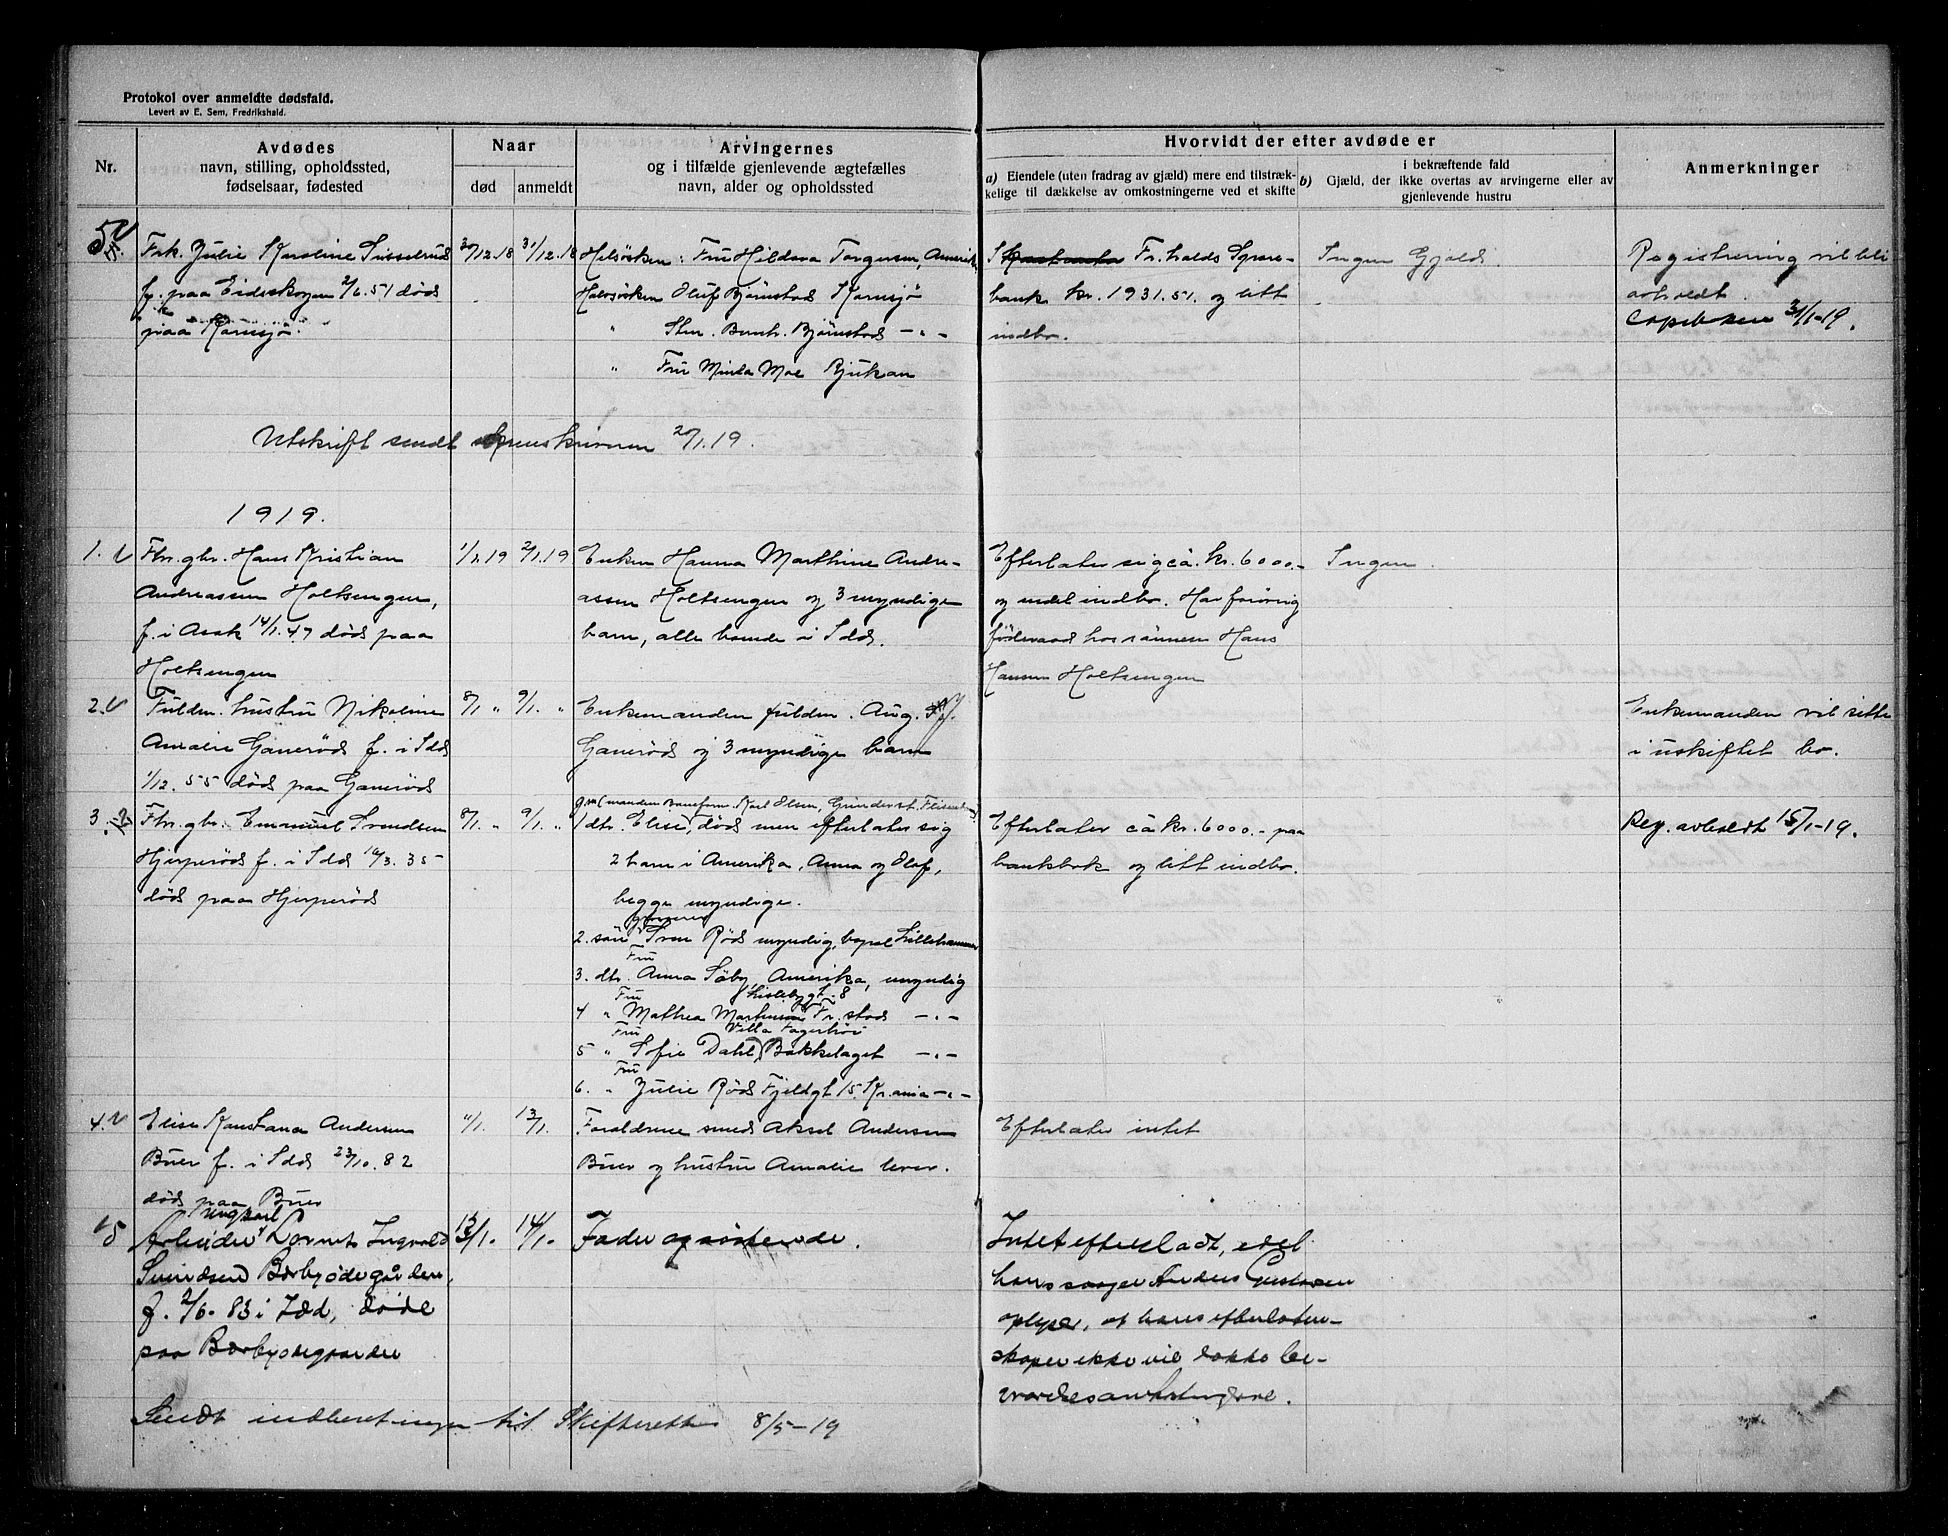 Protokol over anmeldte dødsfald.
Levert av E. Sem, Fredrikshald.
Nr.
Avdødes
navn, stilling, opholdssted,
fødselsaar, fødested
Naar
død
anmeldt
Arvingernes
og i tilfælde gjenlevende ægtefælles
navn, alder og opholdssted
Hvorvidt der efter avdøde er
a) Eiendele (uten fradrag av gjæld) mere end tilstræk-
kelige til dækkelse av omkostningerne ved et skifte
i bekræftende fald
b) Gjæld, der ikke overtas av arvingerne eller av
gjenlevende hustru
Anmerkninger
Frk. Julie Karoline
f. paa Eidskogen 2/6.51 død
paa Kornsjø.
30/12.18
31/12.18
Helsøsken: Fru Torgersen, Amerika
Halvsøsken Oluf Bjørnstad Kornsjø
" Bernh. Bjørnstad -"-
" Fru Minda Moe Rjukan
I Fr.halds Spare-
bank kr. 1931.51. og litt
indbo.
Ingen Gjæld.
Registrering vil bli
avholdt.
31/1-19.
Utskrift sendt 20/1.19.
1919.
1.
Fhr.gbr. Hans Kristian
Andreassen Holtsengen,
f. i Asak 14/1.47 død paa
Holtsengen
1/1.19
2/1.19
Enken Hanna Marthine Andre-
assen Holtsengen og 3 myndige
barn, alle boende i Idd.
Efterlater sig ca. kr. 6000.-
og endel indbo. Har forøvrig
føderaad hos sønnen Hans
Hansen Holtsengen
Ingen.
2.
Fuldm. hustru Nikoline
Amalie Ganerød f. i Idd
1/12.55 død paa Ganerød
8/1 "
9/1. "
Enkemanden fuldm. Aug.
Ganerød og 3 myndige barn
Enkemanden vil sitte
i uskiftet bo.
3.
Fhr. gbr. Emanuel Svendsen
Hjerperød f. i Idd 16/3.35
død paa Hjerperød
8/1 "
9/1. "
(manden Baneform. Karl Olsen, Grinder st.
1 dtr. Elise, død men efterlater sig
2 barn i Amerika, Anna og Olaf,
begge myndige.
2. søn Sven Rød myndig, bopæl Lillehammer
Fru
3. dtr. Anna Søby, Amerika, myndig
Fru
4 " Mathea Fr.stad -"-
Fru Villa Fagerhøi
5 " Sofie Dahl, Bakkelaget -"-
Fru
6. " Julie Rød Fjeldgt 15. Kr.ania -"-
Efterlater ca kr. 6000.- paa
bankbok og litt indbo.
Reg. avholdt 15/1-19.
4.
Elise Konstanse Andersen
Buer f. i Idd 23/10.82
død paa Buer
11/1.
13/1.
Forældrene smed Aksel Andersen
Buer og hustru Amalie lever.
Efterlater intet
5
ungkarl
Arbeider Lornts Ingvald
Svendsen Bærbyødegården,
f. 2/6. 83 i Idd, døde
paa Bærbyødegaarden
13/1.
14/1.
Fader og søskende.
Intet efterladt,
hans svoger Anders Gustavsen
oplyser, at hans efterladen-
skaper ikke vil dække be-
gravelsesomkostningene.
Sendt indberetninger til Skifteretten 8/5-19